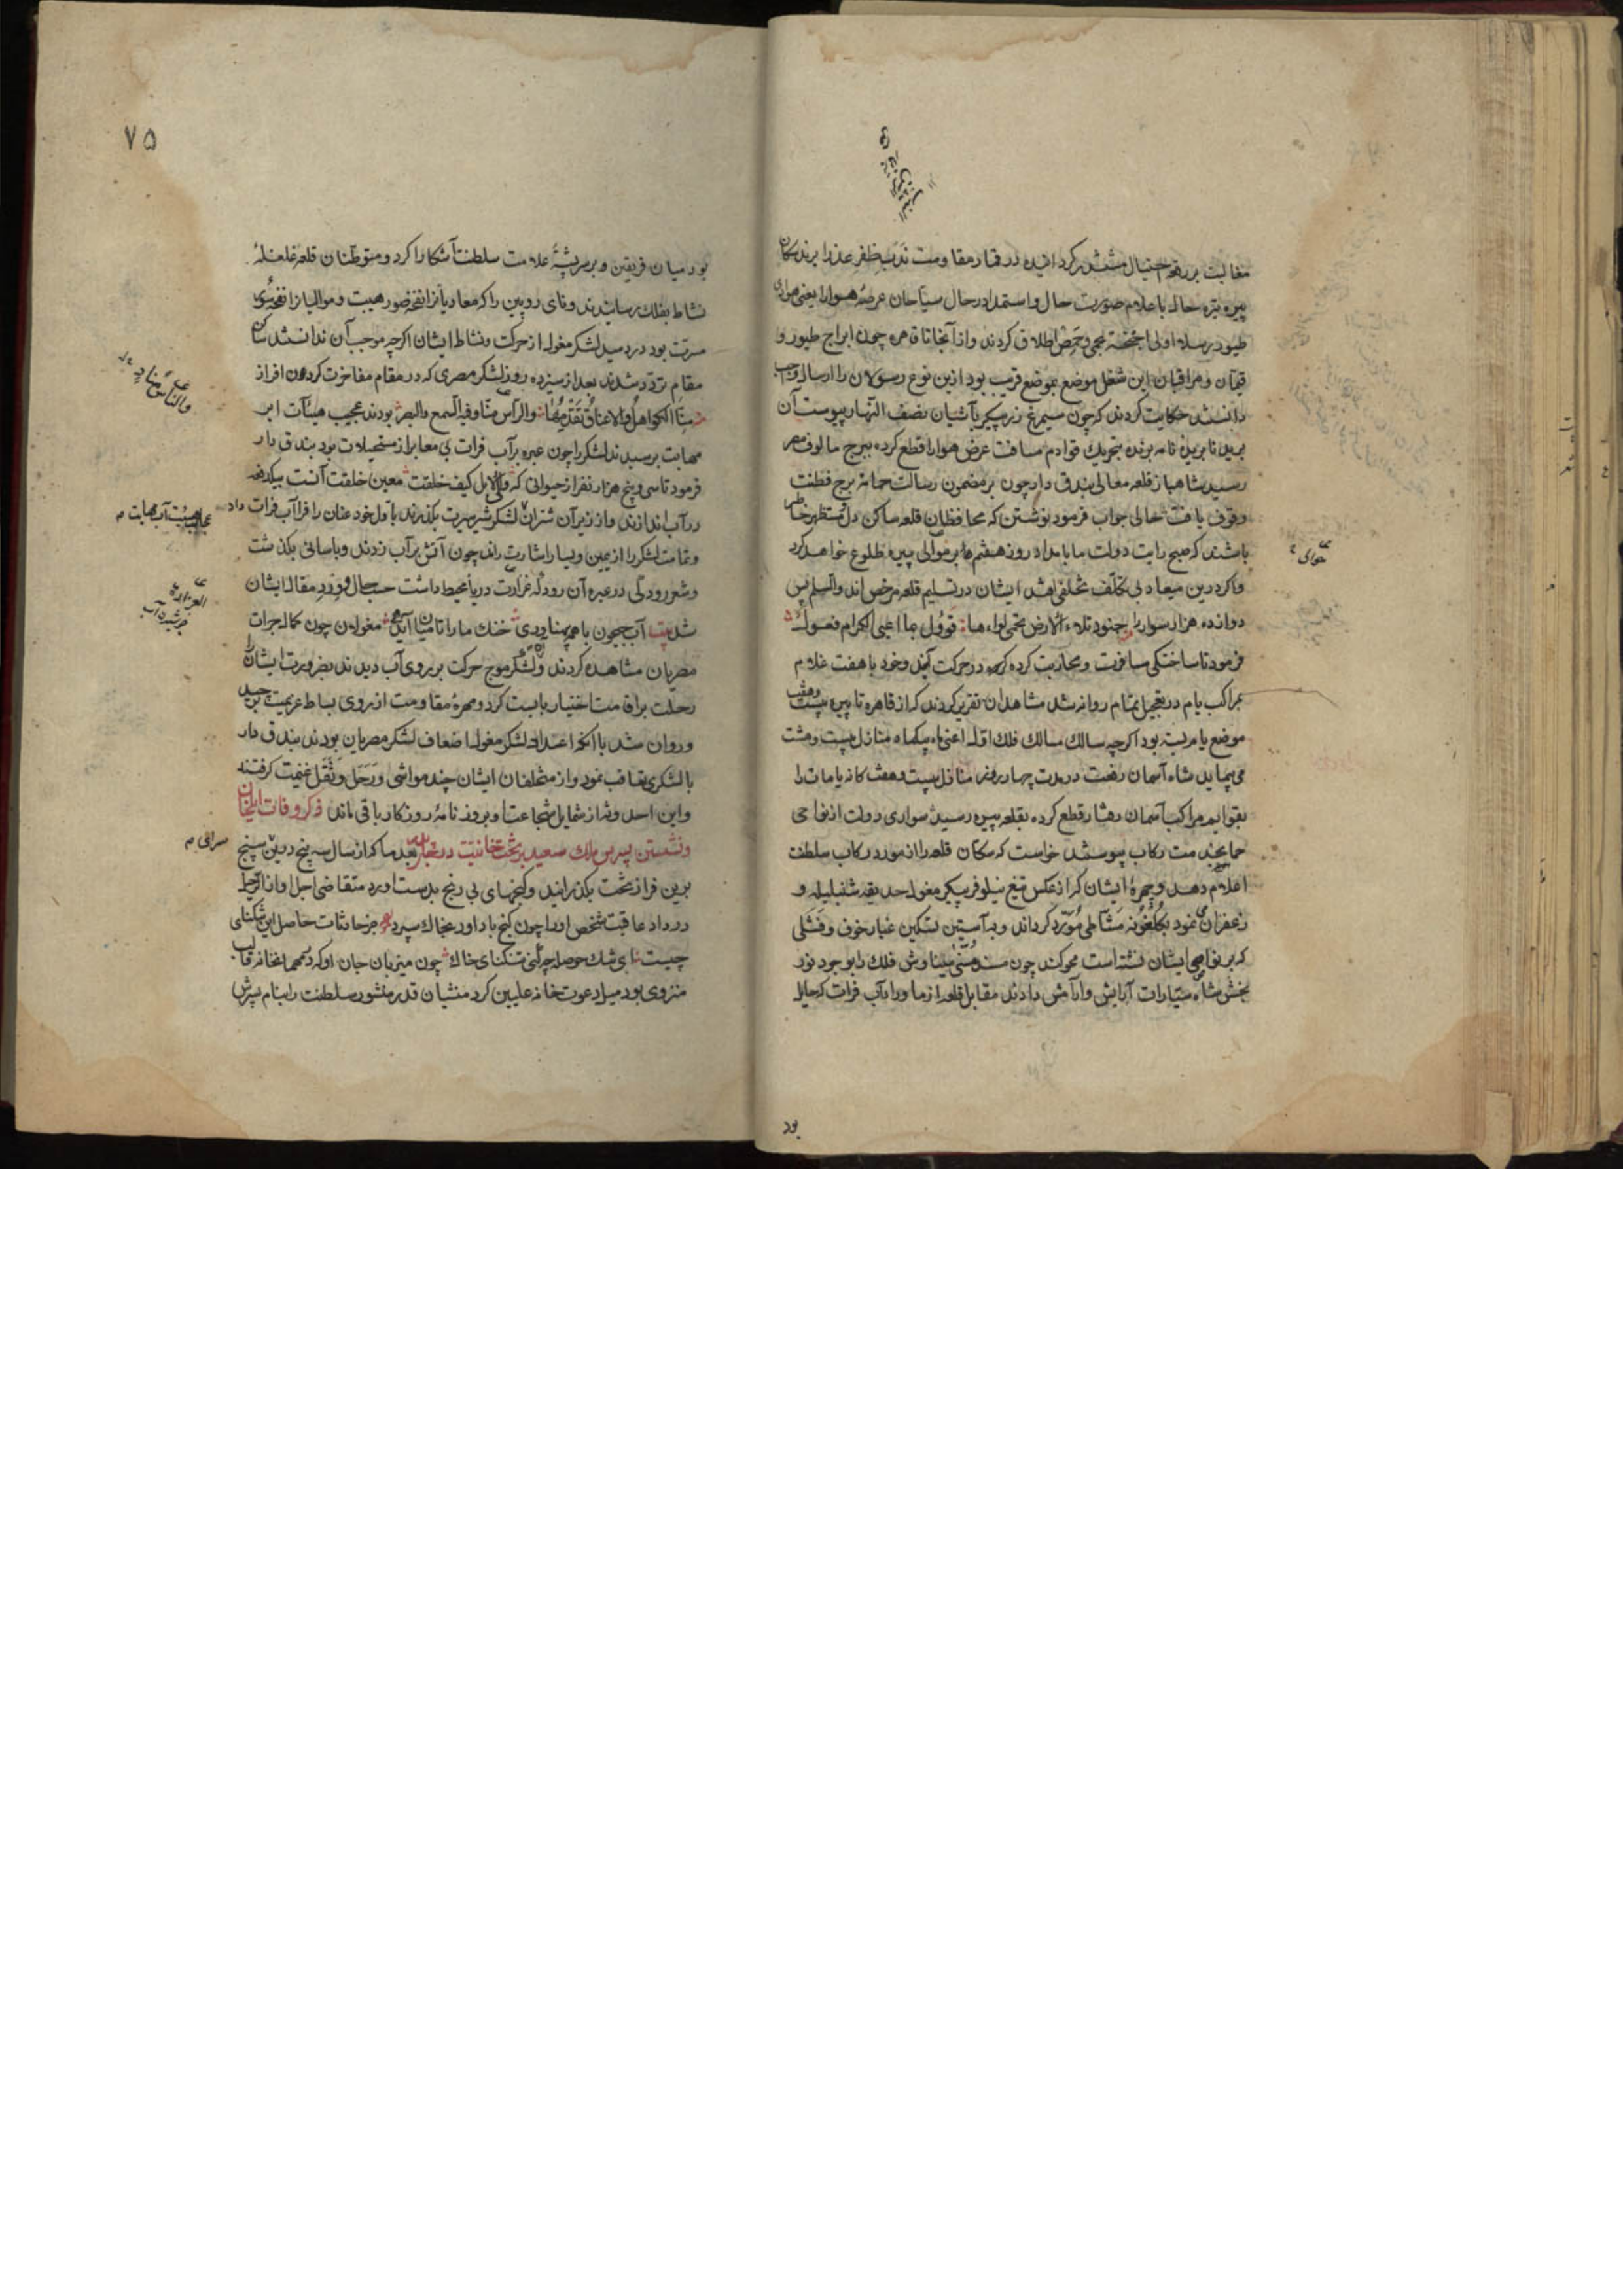 مغالبت بر رقعهٔ احتیال مششدر گردانیده در قمار مقاومت ندب ظفر عذرا برند سکان
بیره بتره حال باعلام صورت حال و استمداد در حال سیاحان عرصه هوا را یعنی
طیور رسلا اولی اجنحة اطلاق کردند و از آنجا تا قاهره چون ابراج طیور و
قیمان و مراقبان این شغل موضع بموضع قریب بود ازین نوع رسولان را ارسال واجب
دانستند حکایت کردند که چون سیمرغ زرپیکر بآشیان نصف النهار پیوست آن
برید نامه برنده بتحریک قوادم مسافت عرض هوا را قطع کرده ببرج مالوف مصر
رسید شاهباز قلعه معالی بندق دار چون بر مضمون رسالت حمائم برج فطنت
وقوف یافت حالی جواب فرمود نوشتن که محافظان قلعه ساکن دل و مستظهر خاطر
باشند که صبح رایت دولت ما بامداد روز هفتم بر حوالی بیره طلوع خواهد کرد
و اگر درین میعاد بی تکلف تخلفی افتد ایشان در تسلیم قلعه مرخص اند والسلم پس
دوازده هزار سوار را جنود تلاء الارض تحمی لواءها قوول بما اعیی الکرام فعول
فرمود تا ساختگی مسافرت و محاربت کرده در حرکت آیند و خود با هفت غلام
بمراکب یام در تعجیل تمام روانه شد مشاهدان تقریر کردند که از قاهره تا بیره بیست و هفت
موضع یام بسته بود اگرچه سالک مسالک فلک اول اعنی ماه بیکماه منازل بیست و هشت
می پیماید شاه آسمان رفعت در مدت چهار روز منازل بیست و هفت گانه یامات را
بقوایم مراکب آسمان رفتار قطع کرده بقلعه بیره رسید سواری دولت از نواحی
همایخدمت رکاب پیوستند خواست که سکان قلعه را از مورد رکاب سلطنت
اعلام دهد و چهرهٔ ایشان که از عکس تیغ نیلوفر پیکر مغول حدیقه شنبلیله و
زعفران می نمود بگلغونه مشاطی مورد گرداند و بآستین تسکین غبار خوف و فشلی
که بر نواصی ایشان نشسته است محو کند چون مینا وش فلک را بوجود نور
بخش شاه سیارات آرایش و آرامش دادند مقابل قلعه از ماوراء آب فرات که حایل
بود
حوالی
۷۵
بود میان فریقین و بر سر پشتهٔ علامت سلطنت آشکارا کرد و متوطنان قلعه غلغله
نشاط بفلک رسانیدند و نای رویین را که معادیانرا نفخهٔ صور هیبت و موالیانرا نفحه
مسرت بود دردمید لشکر مغول از حرکت و نشاط ایشان اگرچه موجب آن ندانستند ساکن
مقام تردد شدند بعد از سیزده روز لشکر مصری که در مقام مفاخرت گردون افراز
منا الکواهل والاعناق تقدمها والراس منا وفیه السمع والبصر بودند عجیب هیئات ابر
مهابت برسیدند لشکر را چون عبره بر آب فرات بی معابر از مستحیلات بود بندق دار
فرمود تا سی و پنج هزار نفر از حیوانی که الی الابل کیف خلقت معین خلقت آنست بیکدفعه
در آب اندازند و از زیر آن شتران لشکر شیر سیرت بگذرند باول خود عنان را فرا آب فرات داد
و تمامت لشکر را از یمین و یسار اشارت راند چون آتش بر آب زدند و بآسانی بگذشت
و شعور رودکی در عبره آن رود که غزارت دریاء محیط داشت حسب حال و ورد مقال ایشان
شد بیت آب جیحون با همه پهناوری خنک ما را تا میان آید همی مغولان چون کمال جرات
مصریان مشاهده کردند و لشکر موج حرکت بر روی آب دیدند بضرورت ایشان را
رحلت بر اقامت اختیار بایست کرد و مهرهٔ مقاومت از روی بساط عزیمت برچید
و روان شد با آنکه اعداد لشکر مغول اضعاف لشکر مصریان بودند بندق دار
با لشکری تعاقب نمود و از متخلفان ایشان چند مواشی و رحل و ثقل غنیمت گرفتند
و این احدوثه از شمایل شجاعت او بر روزنامهٔ روزگار باقی ماند ذکر وفات ایلخان
و نشستن پسرش ملک سعید بر تخت خانیت در بعد ما که از سال سه پنج درین سپنج
برین فراز تخت بگذرانید و گنجهای بی رنج بدست آورد متقاضی اجل او را
در داد عاقبت شخص او را چون گنج باد آور بخاک سپرد جز حادثات حاصل این تنگنای
چیست ای تنگ حوصله چه کنی تنگنای خاک چون میزبان جان او که در مهمانخانه قالب
منزوی بود میل دعوت خانه علیین کرد منشیان قدر منشور سلطنت را بنام پسرش